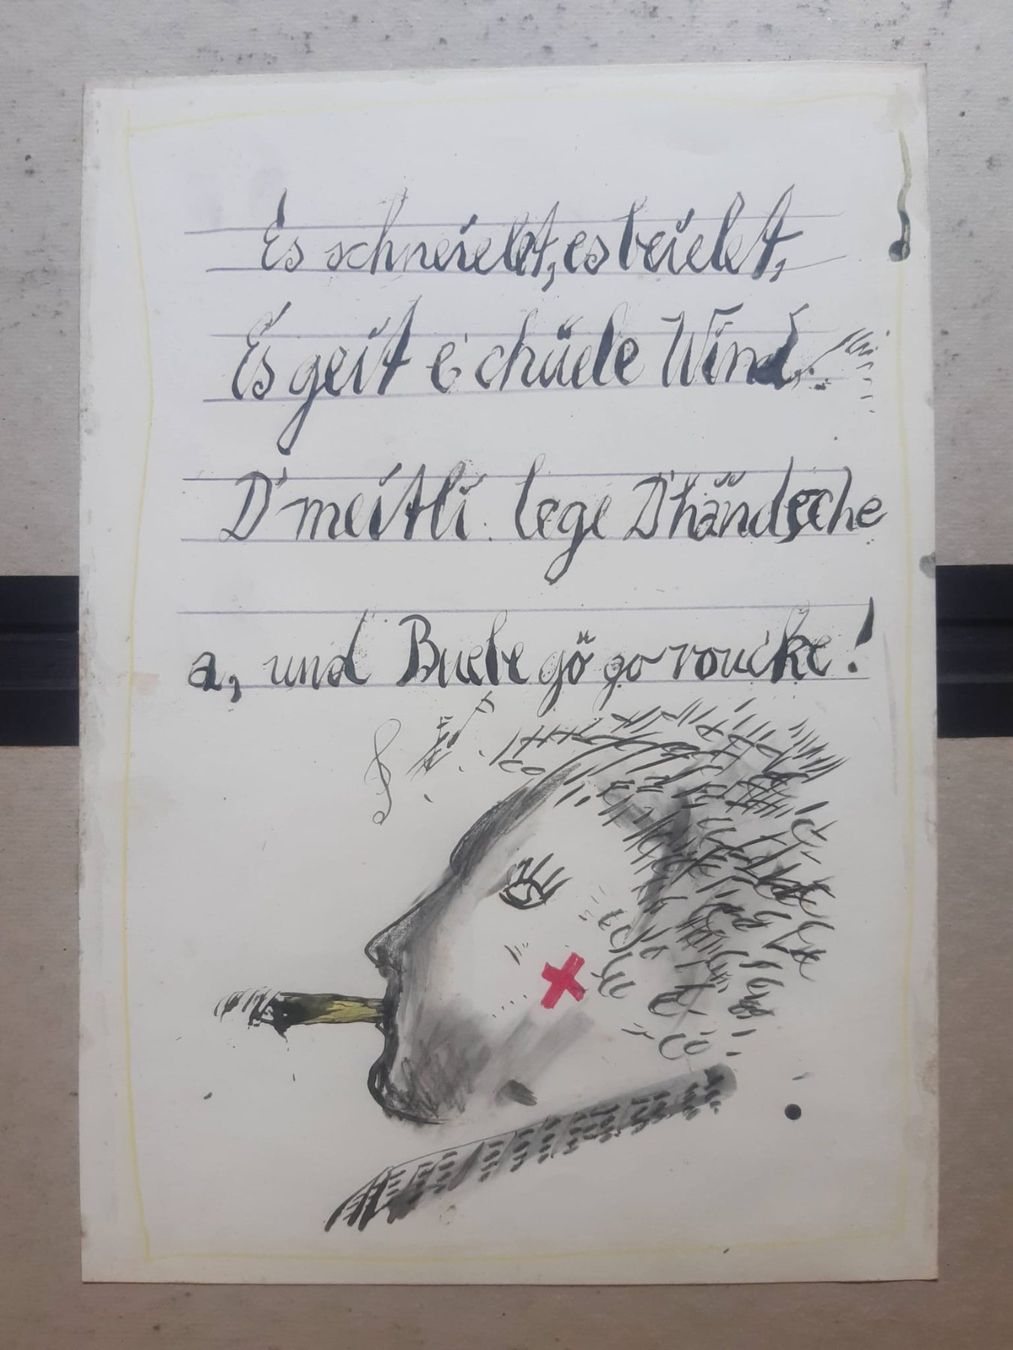 Es schneielet, es beielet,
Es geit e chüele Wind.
D'meitli lege D'händsche
a, und Buebe gö go roucke!